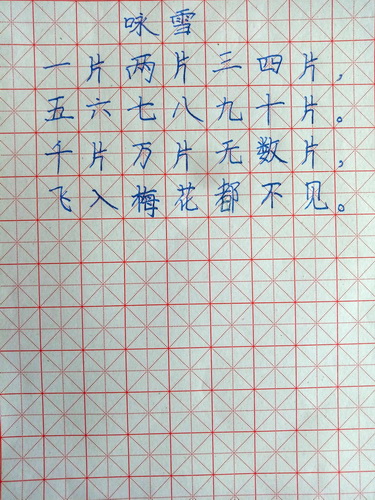 咏雪
一片两片三四片,
五六七八九十片。
千片万片无数片,
飞入梅花都不见。